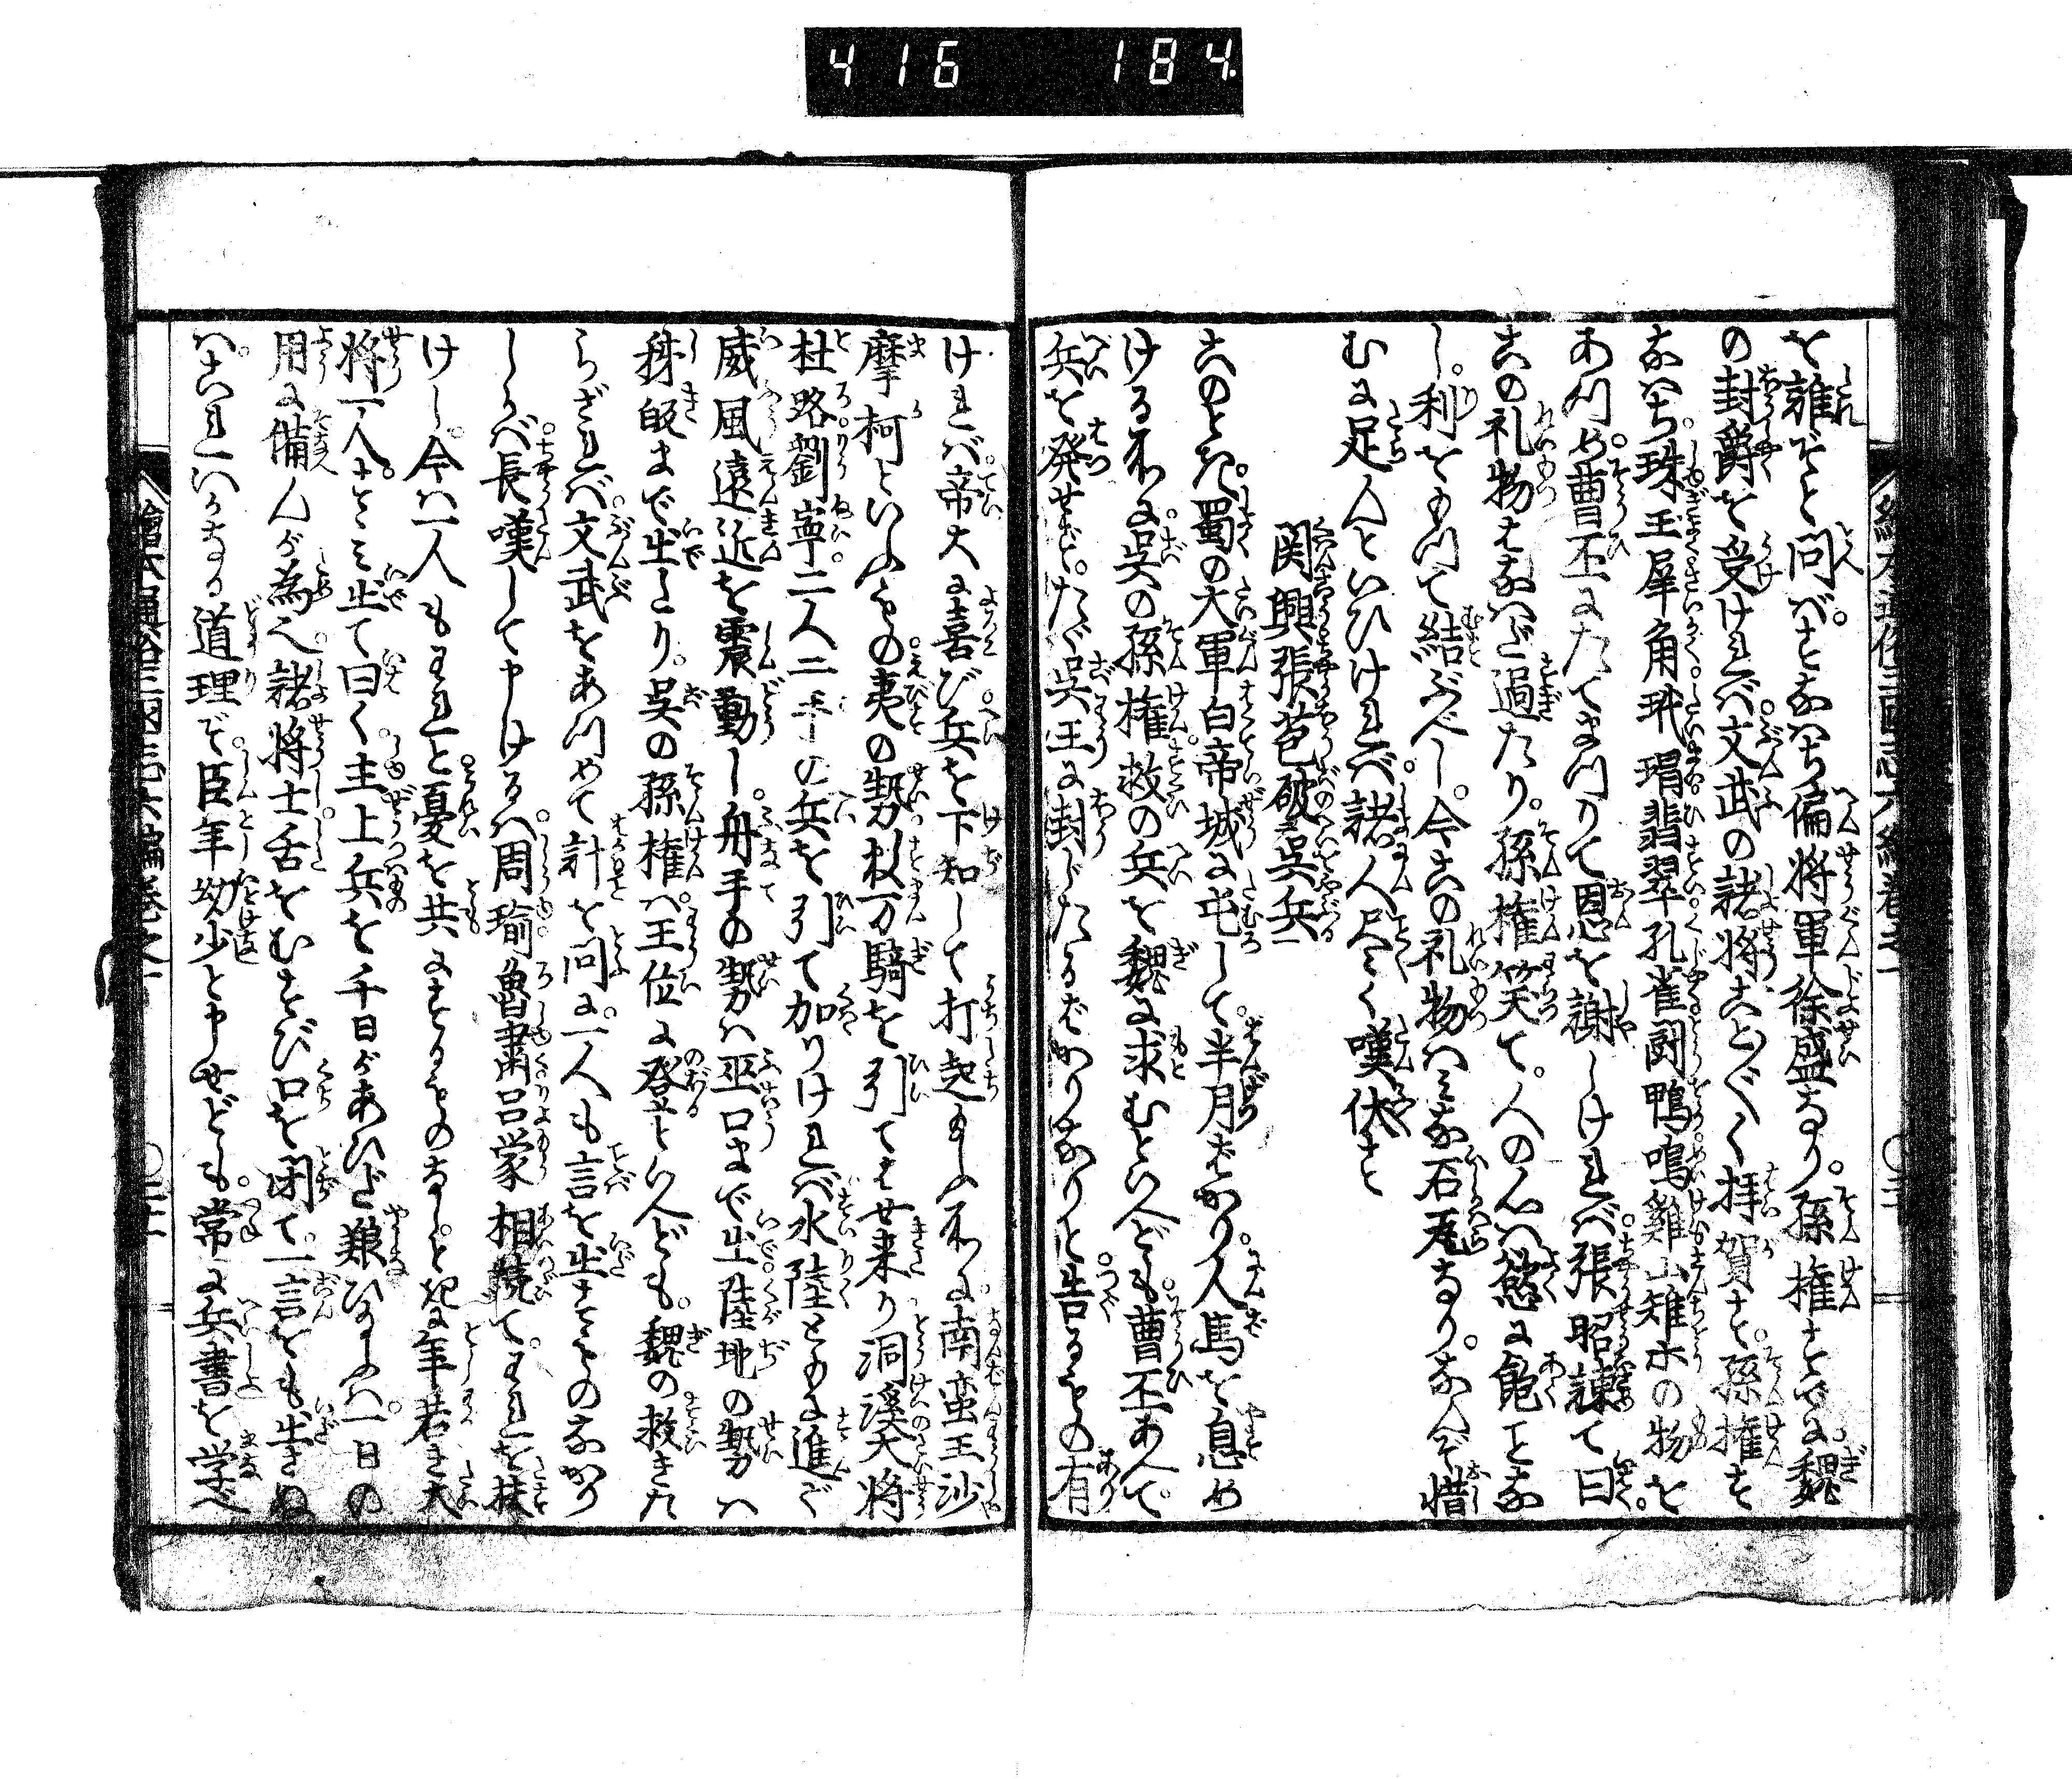 416 184.
を誰ぞと問ば。すなはち偏将軍徐盛なり。孫権すでに魏
の封爵を受けれバ文武の諸将こと〴〵く拝賀す。孫権す
なはち。珠玉犀角玳瑁翡翠孔雀闘鴨鳴雞山雉水の物を
あつめ。曹丕にたてまつりて恩を謝しけれバ張昭諫て曰。
この礼物はなはだ過たり。孫権笑て。人の心ハ慾に飽ことな
し。利をもつて結ぶべし。今この礼物ハミな石瓦なり。なんぞ惜
むに足んといひけれバ。諸人尽く嘆伏す
関興張苞破呉兵
このとき。蜀の大軍白帝城に屯して。半月ばかり。人馬を息め
ける所に。呉の孫権救の兵を魏に求むといへども。曹丕あへて。
兵を発せず。たゞ呉王に封じたるばかりなりと告るもの有
けれバ。帝大に喜び。兵を下知して打起給ふ所に。南蛮王沙
摩柯といふもの。夷の勢数万騎を引てはせ来り洞溪大将
杜路劉寧二人二手の兵を引て加りけれバ水陸ともに進ん
威風遠近を震動し。舟手の勢ハ巫口まで出。陸地の勢ハ
秭皈まで出たり。呉の孫権ハ王位に登るといへども。魏の救きた
らざれバ。文武をあつめて計を問に。一人も言を出すものなかり
しかバ。長嘆して申けるハ周瑜魯粛呂蒙相続て。われを扶
けし。今ハ一人もわれと憂を共にするものなしときに年若き大
将一人。すゝミ出て曰く。主上兵を千日があひだ艱ひ給ふハ。一日の
用に備へんが為也。諸将士舌をむすび口を閉て。一言をも出さぬ
ハ。これいかなる道理ぞ。臣年幼少と申せども。常に兵書を学べ